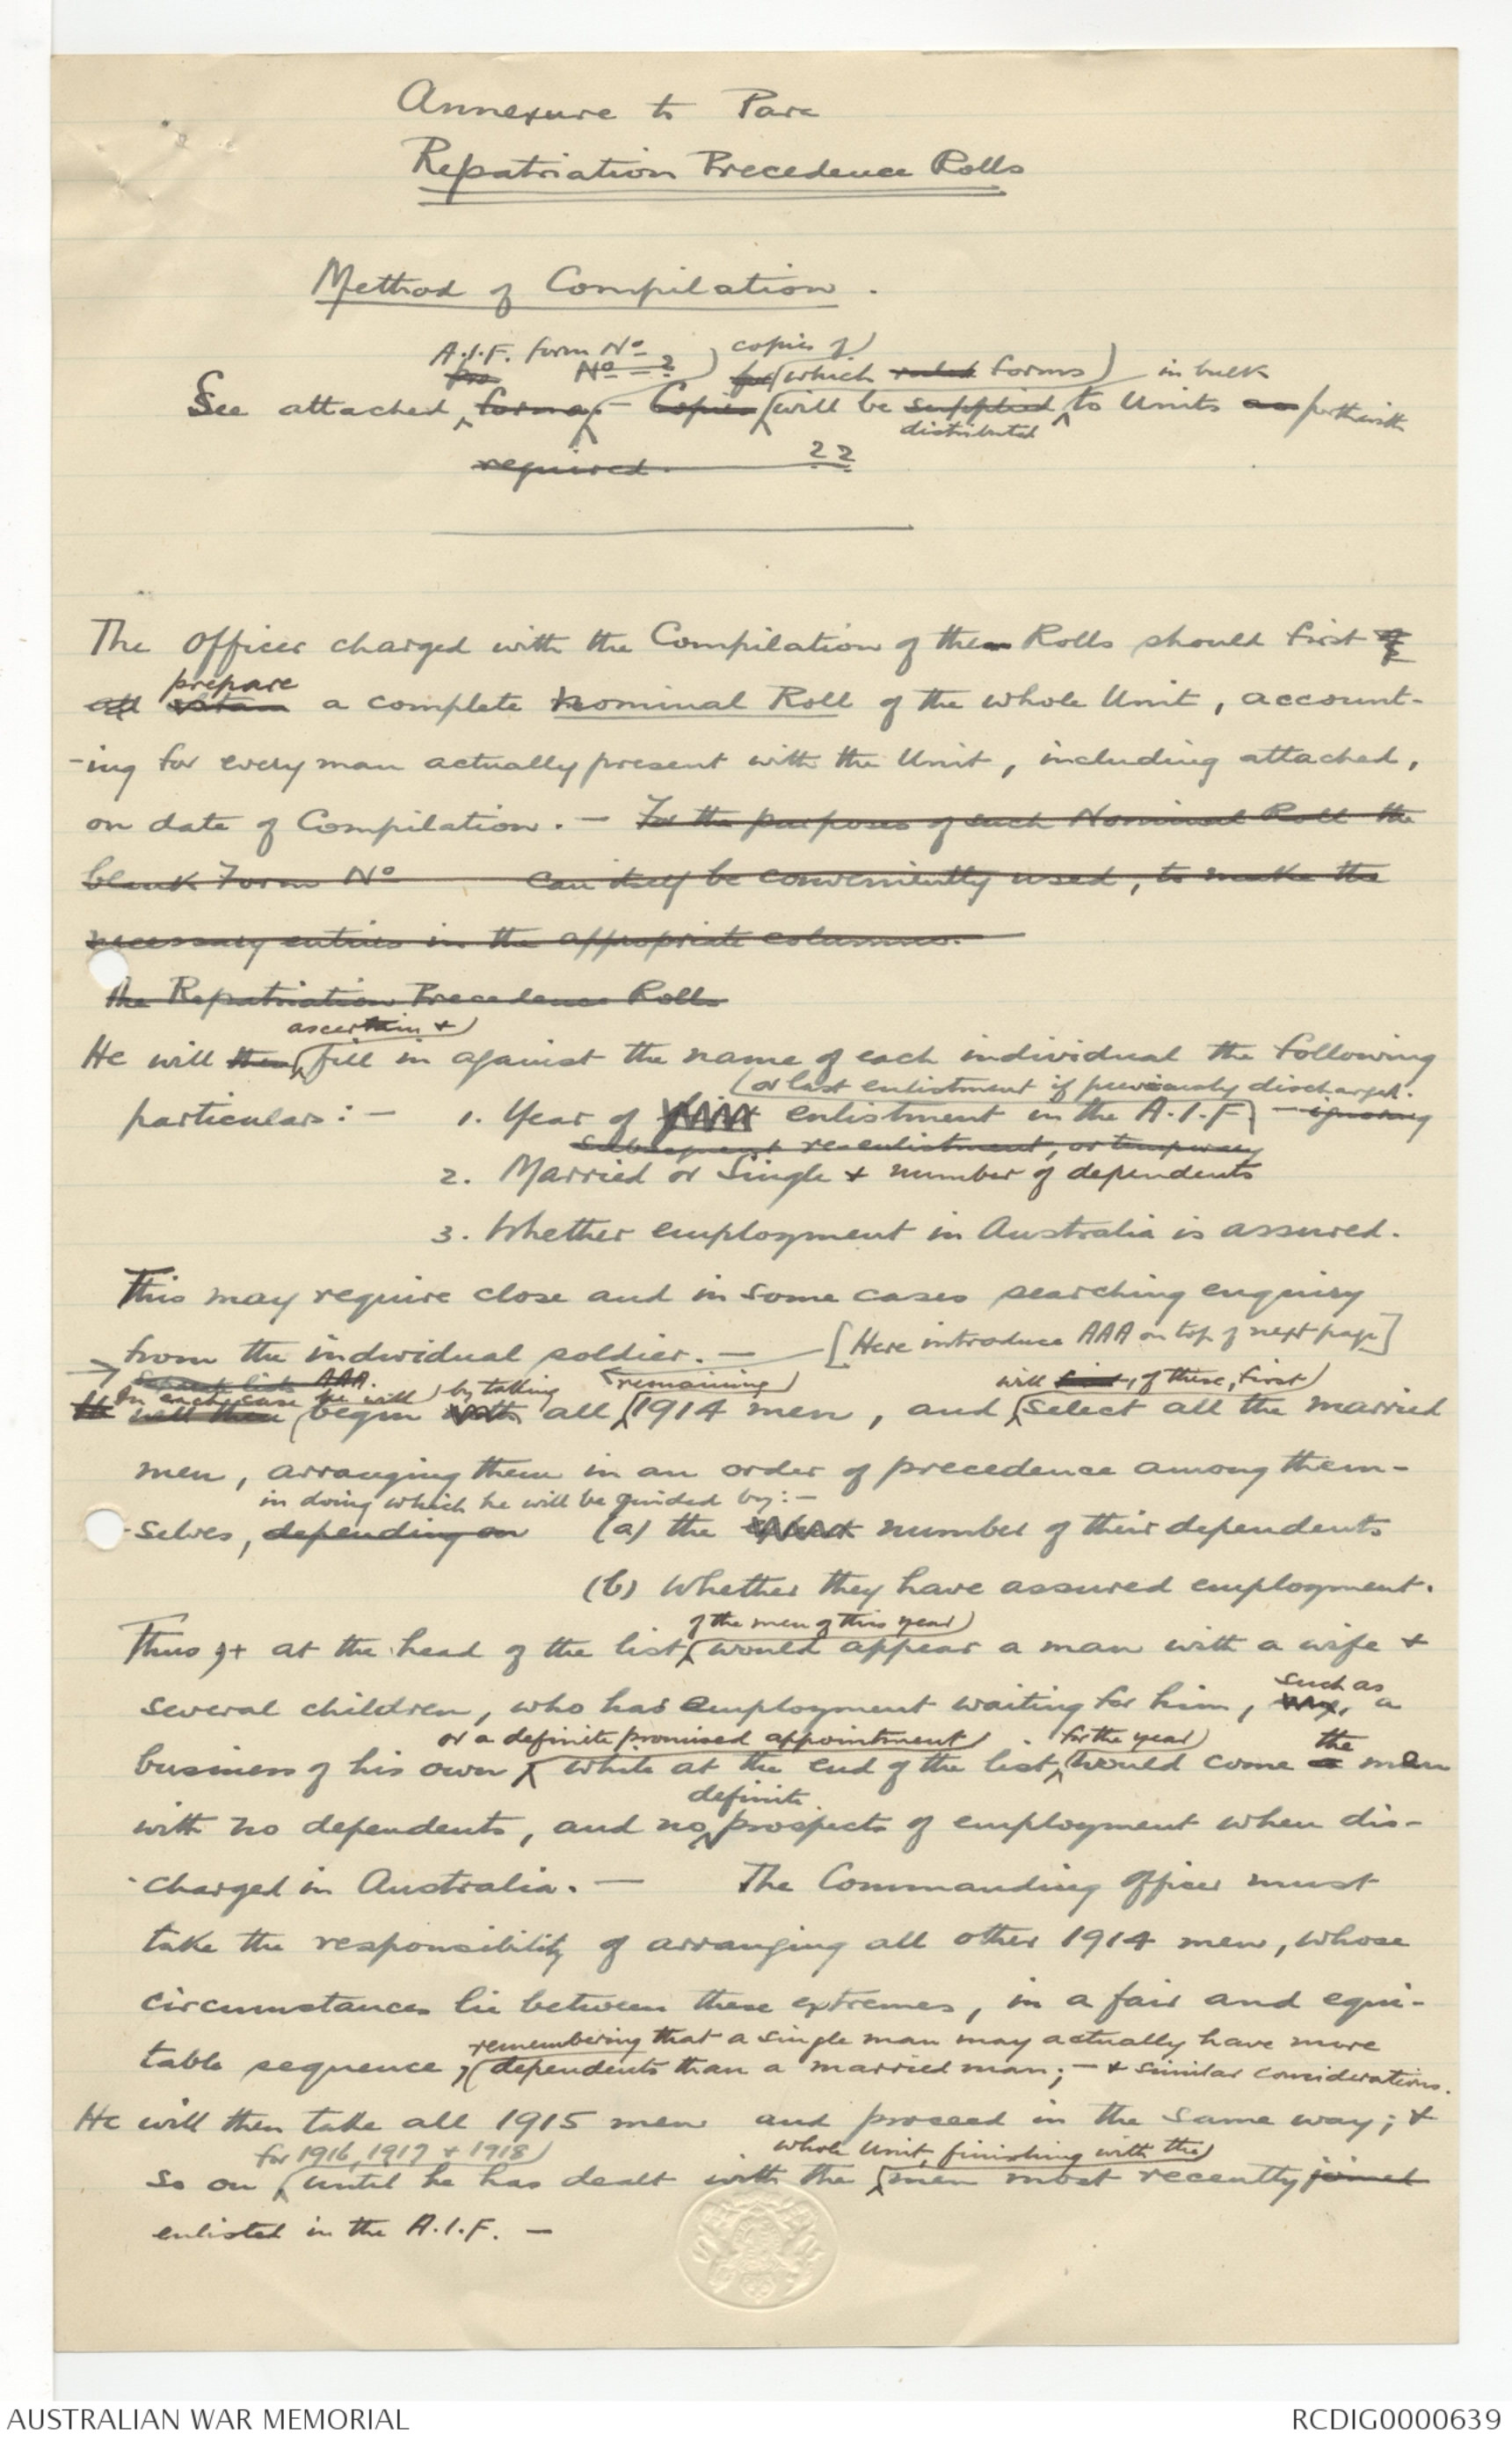 Annexure to Para
Repatriation Precedence Rolls
Method of Compilation.
A.I.F. form No copies of
No — ? which ruled forms in bulk
See attached forma, — Copies will be supplied to Units as forthwith
distributed
required. ??
The Officer charged with the Compilation of these Rolls should first
prepare
a complete Nominal Roll of the whole Unit, account-
-ing for every man actually present with the Unit, including attached,
on date of Compilation. — For the purposes of such Nominal Roll the
blank Form No can itself be conveniently used, to make the
necessary entries in the appropriate columns.
The Repatriation Precedence Rolls
ascertain +
He will then fill in against the name of each individual the following
(or last enlistment if previously discharged.
particulars: — 1. Year of enlistment in the A.I.F. — ignoring
subsequent re-enlistment, or temporary
2. Married or Single + number of dependents
3. Whether employment in Australia is assured.
This may require close and in some cases searching enquiry
from the individual soldier. — [Here introduce AAA on top of next page]
AAA.
In each case he will by taking remaining will first, of these, first
He will then begin with all 1914 men, and select all the married
men, arranging them in an order of precedence among them-
in doing which he will be guided by: —
-selves, depending on (a) the number of their dependents
(b) Whether they have assured employment.
of the men of this year
Thus, at the head of the list would appear a man with a wife +
such as
several children, who has employment waiting for him, a
or a definite promised appointment for the year the
business of his own, while at the end of the list, would come a men
definite
with no dependents, and no prospects of employment when dis-
-charged in Australia. — The Commanding Officer must
take the responsibility of arranging all other 1914 men, whose
circumstances lie between these extremes, in a fair and equi-
remembering that a single man may actually have more
table sequence, dependents than a married man; — + similar considerations.
He will then take all 1915 men and proceed in the same way; +
for 1916, 1917 + 1918 whole Unit, finishing with the
so on until he has dealt with the men most recently joined
enlisted in the A.I.F. —
AUSTRALIAN WAR MEMORIAL
RCDIG0000639